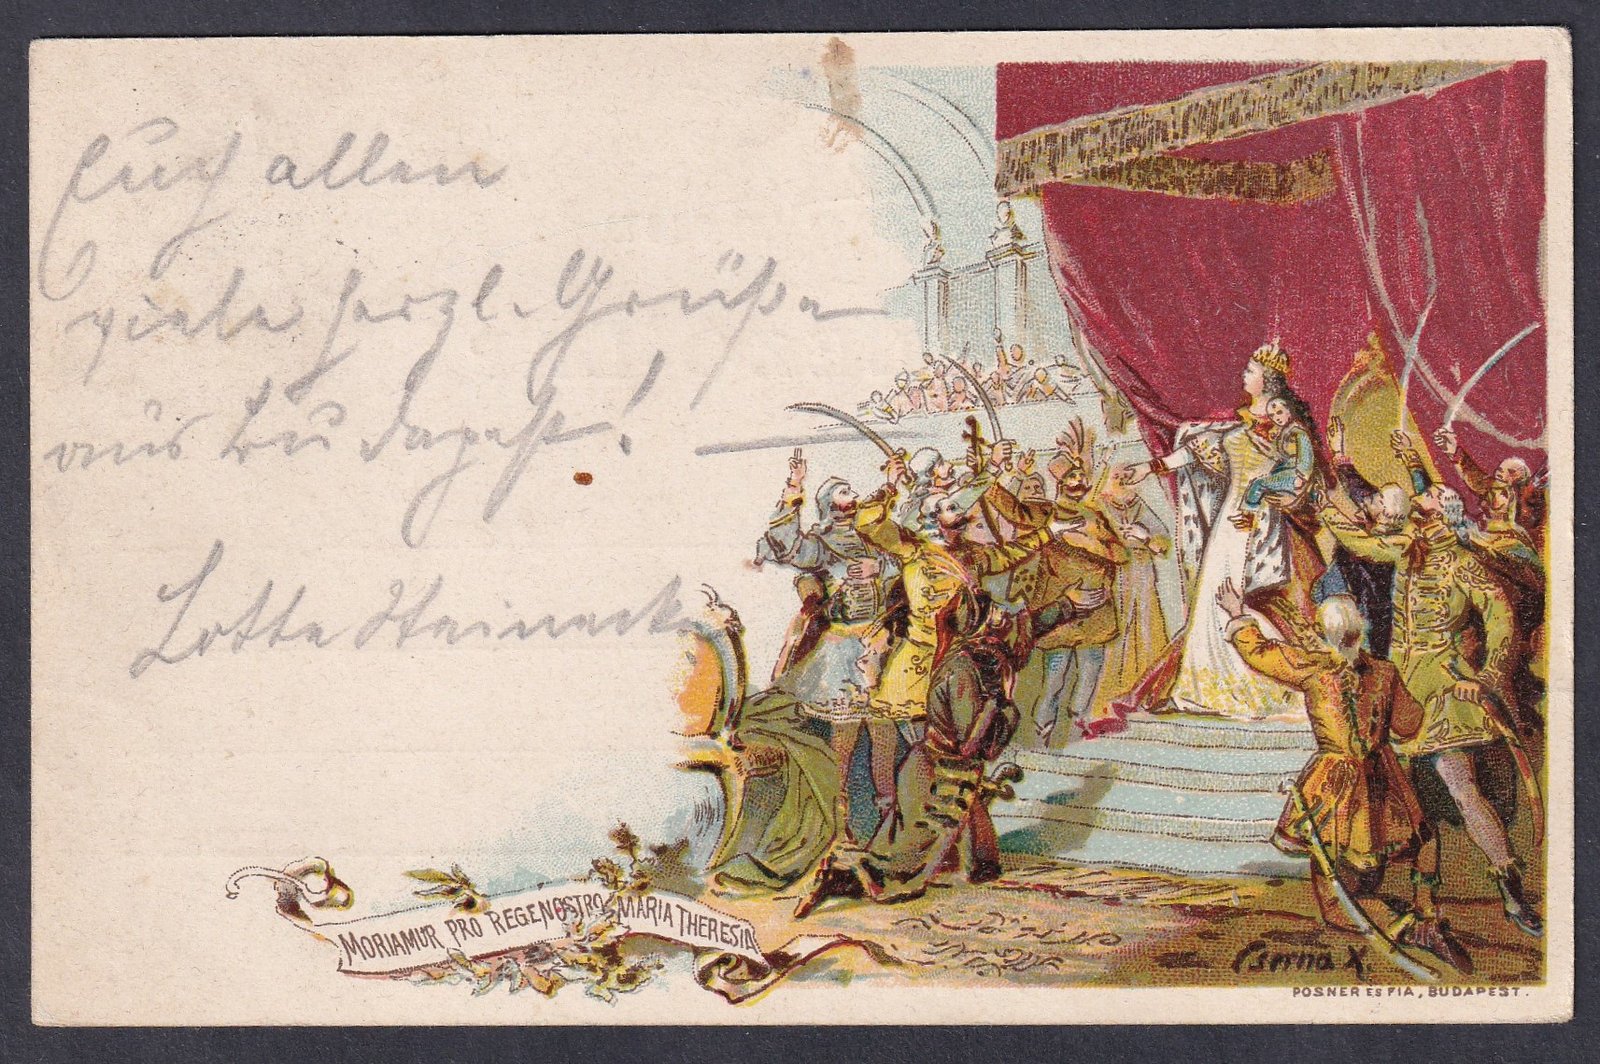 Euch allen
viele herzl. Grüße
aus Budapest!
Lotte Steinecke
MORIAMUR PRO REGE NOSTRO MARIA THERESIA
Cserna K.
POSNER ES FIA, BUDAPEST.